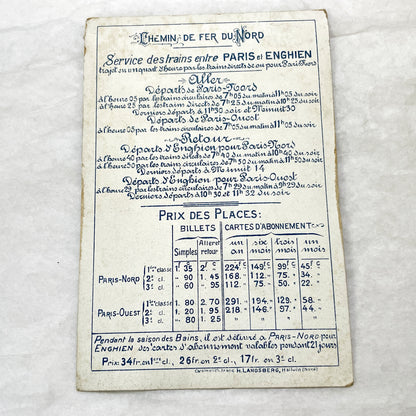 CHEMIN DE FER DU NORD
Service des trains entre PARIS et ENGHIEN
trajet en un quart d'heure par les trains directs de ou pour Paris-Nord
Aller
Départs de Paris-Nord
à l'heure 05 par les trains circulaires de 7h05 du matin à 11h05 du soir
à l'heure 25 par les trains directs de 7h25 du matin à 10h25 du soir
Derniers départs à 11h50 soir et Minuit 30
Départs de Paris-Ouest
à l'heure 05 par les trains circulaires de 7h05 du matin à 11h05 du soir
Retour
Départs d'Enghien pour Paris-Nord
à l'heure 40 par les trains directs de 7h40 du matin à 10h40 du soir
à l'heure 50 par les trains circulaires de 7h50 du matin à 11h50 du soir
Dernier départ à Minuit 14
Départs d'Enghien pour Paris-Ouest
à l'heure 29 par les trains circulaires de 7h29 du matin à 9h29 du soir
Derniers départs à 10h30 et 11h32 du soir
PRIX DES PLACES:
BILLETS CARTES D'ABONNEMENT
Simples Aller et retour un an six mois trois mois un mois
PARIS-NORD 1ère classe 1. 35 2f " c 224f 149f 99f 45f
2e cl. " 90 1. 45 168. 112. 75. 34.
3e cl. " 60 " 95 112. 75. 50. 22.
PARIS-OUEST 1ère classe 1. 80 2. 70 291. 194. 129. 58.
2e cl. 1. 20 1. 95 218. 146. 97. 44.
3e cl. " 80 1. 25 " " " "
Pendant la saison des Bains, il est délivré à PARIS-NORD pour
ENGHIEN des cartes d'abonnement valables pendant 21 jours
Prix: 34fr. en 1ère cl., 26fr. en 2e cl., 17fr. en 3e cl.
H. LANGSBERG,